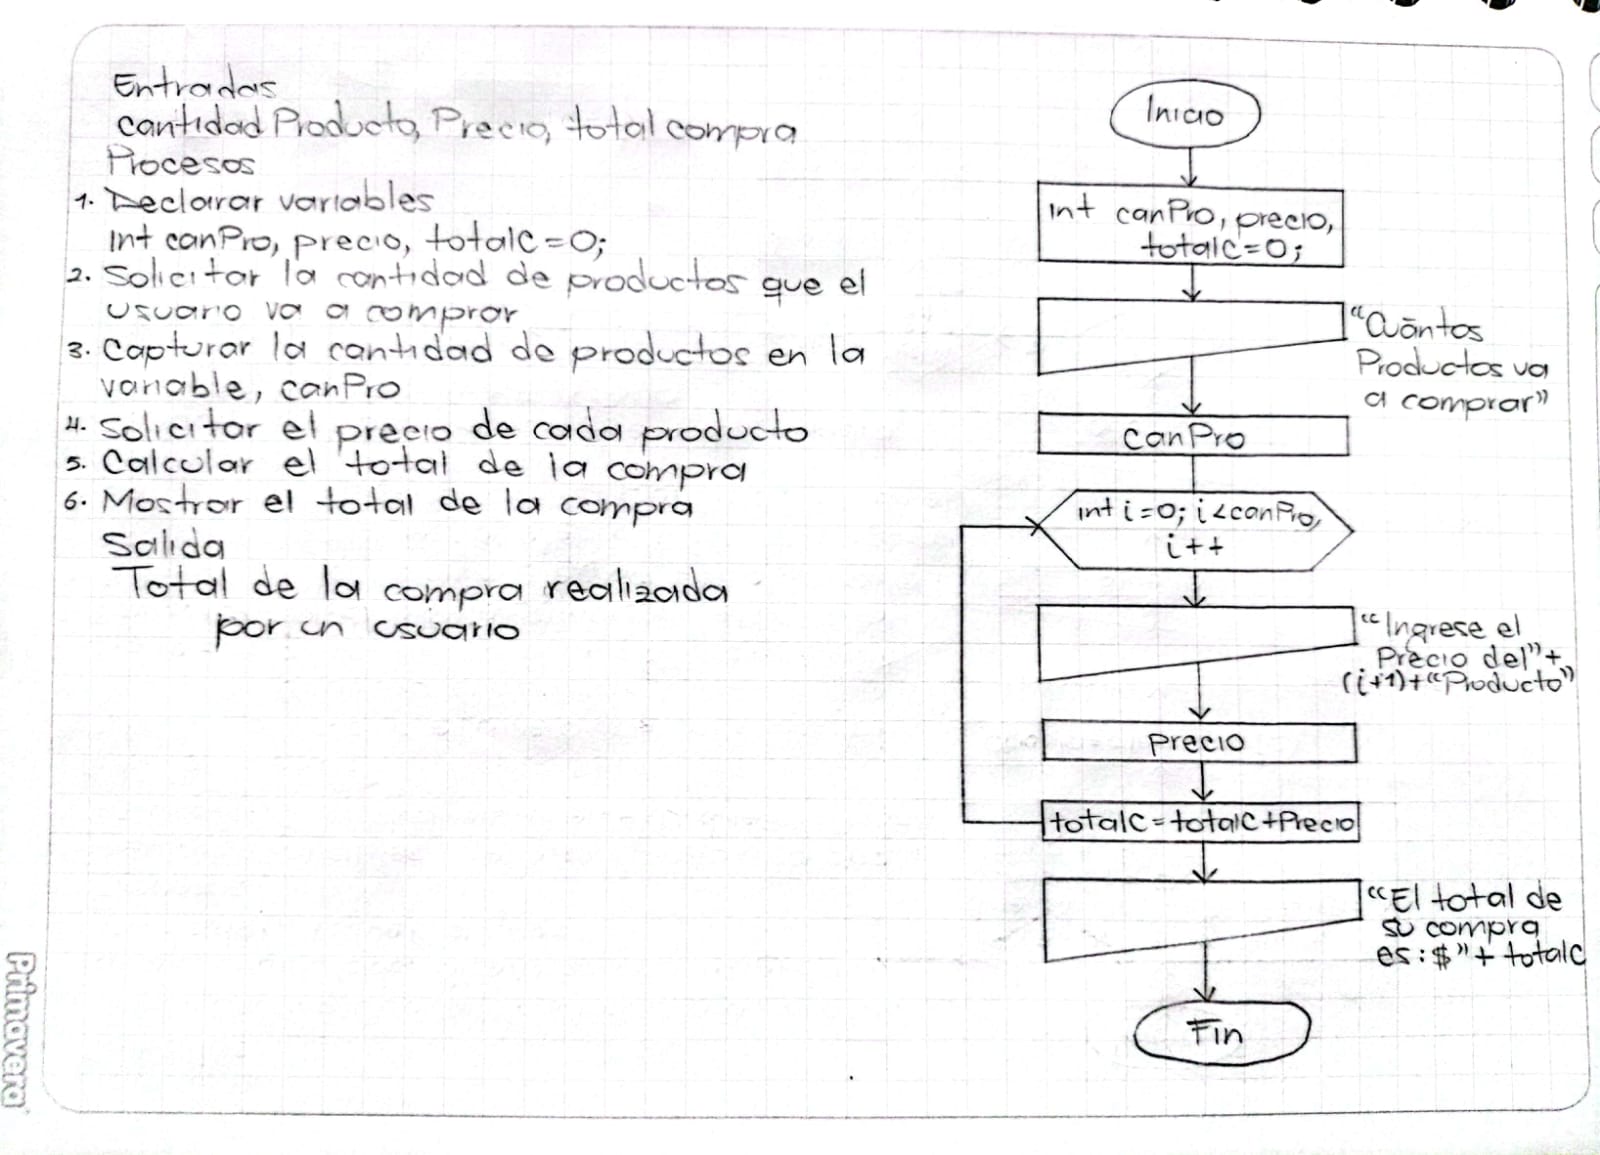 Entradas
cantidad Producto, Precio, total compra
Procesos
1. Declarar variables
Int canPro, precio, totalC=0;
2. Solicitar la cantidad de productos que el
usuario va a comprar
3. Capturar la cantidad de productos en la
variable, canPro
4. Solicitar el precio de cada producto
5. Calcular el total de la compra
6. Mostrar el total de la compra
Salida
Total de la compra realizada
por un usuario
Inicio
Int canPro, precio,
totalC=0;
"Cuántos
Productos va
a comprar"
canPro
int i=0; i<canPro,
i++
"Ingrese el
Precio del"+
(i+1)+"Producto"
Precio
totalC=totalC+Precio
"El total de
su compra
es:$"+totalC
Fin
Primavera